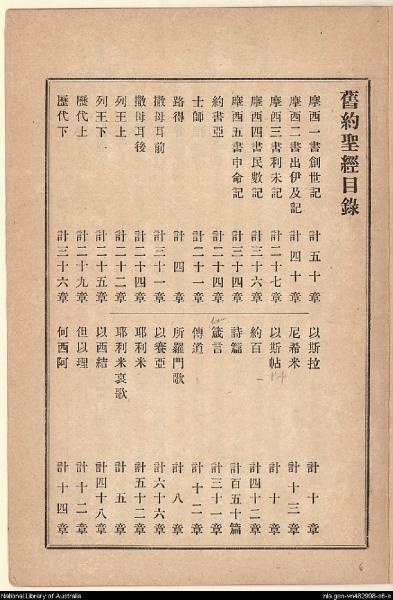 舊約聖經目錄
摩西一書創世記 計五十章
摩西二書出伊及記 計四十章
摩西三書利未記 計二十七章
摩西四書民數記 計三十六章
摩西五書申命記 計三十四章
約書亞 計二十四章
士師 計二十一章
路得 計四章
撒母耳前 計三十一章
撒母耳後 計二十四章
列王上 計二十二章
列王下 計二十五章
歷代上 計二十九章
歷代下 計三十六章
以斯拉 計十章
尼希米 計十三章
以斯帖 計十章
約百 計四十二章
詩篇 計百五十篇
箴言 計三十一章
傳道 計十二章
所羅門歌 計八章
以賽亞 計六十六章
耶利米 計五十二章
耶利米哀歌 計五章
以西結 計四十八章
但以理 計十二章
何西阿 計十四章
6
National Library of Australia
nla.gen-vn482998-s6-e